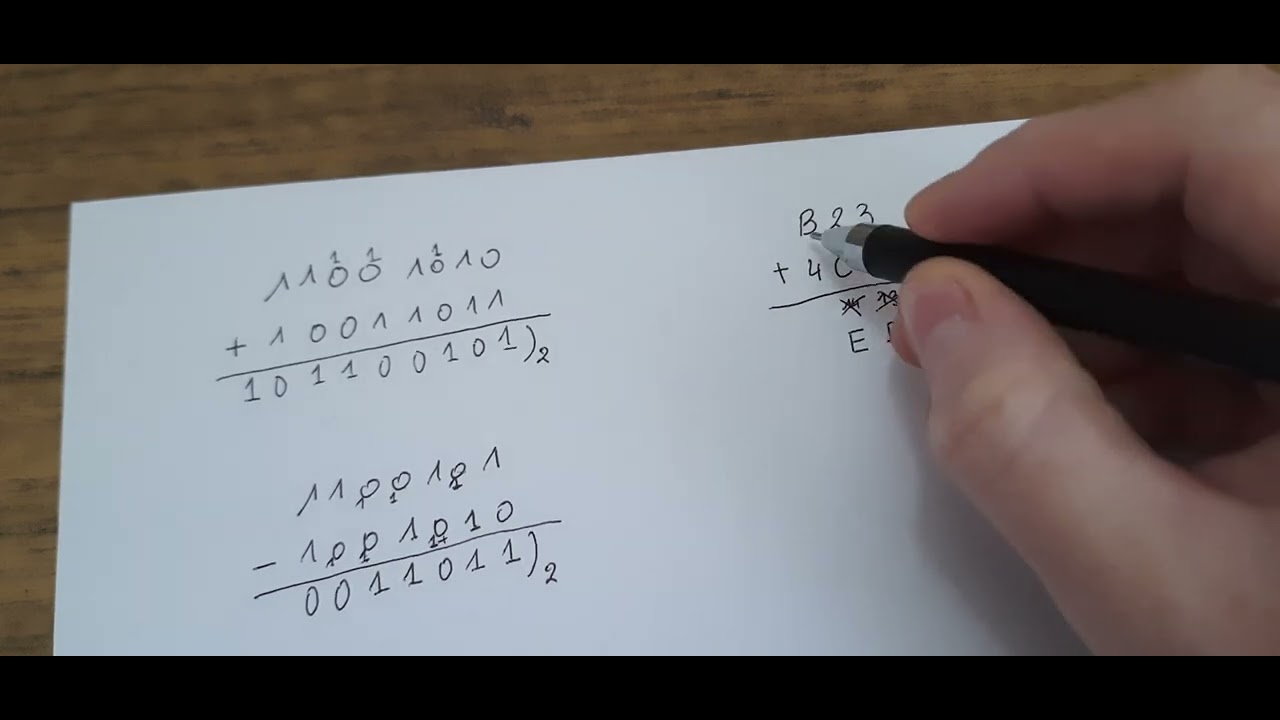 11001010
+ 10011011
101100101)2
1100101
- 1001010
0011011)2
B23
+ 4
E